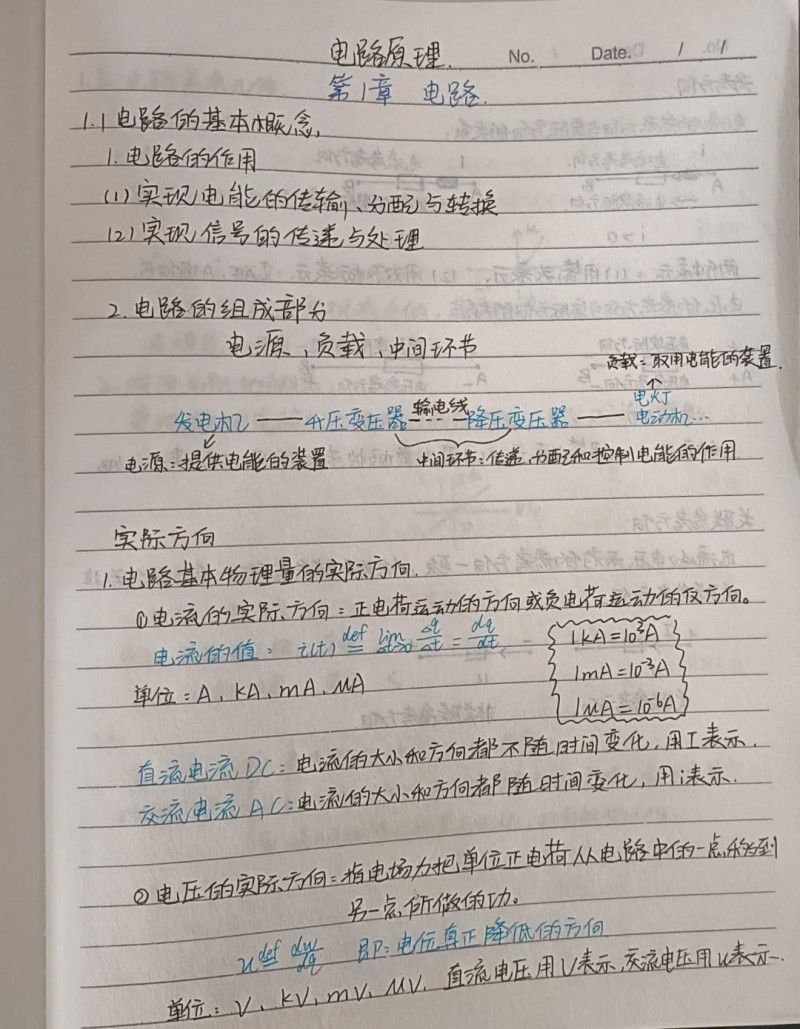 电路原理. No. Date. / /
第1章 电路.
1.1 电路的基本概念.
1. 电路的作用
(1) 实现电能的传输、分配与转换
(2) 实现信号的传递与处理
2. 电路的组成部分
电源,负载,中间环节
负载:取用电能的装置.
发电机 —— 升压变压器 输电线 降压变压器 —— 电灯 电动机…
电源:提供电能的装置 中间环节:传递,分配和控制电能的作用
实际方向
1. 电路基本物理量的实际方向.
① 电流的实际方向:正电荷运动的方向或负电荷运动的反方向。
电流的值: i(t) def= lim Δt→0 Δq/Δt = dq/dt
1kA=10³A
单位:A、kA、mA、μA
1mA=10⁻³A
1μA=10⁻⁶A
直流电流 DC:电流的大小和方向都不随时间变化,用I表示.
交流电流 AC:电流的大小和方向都随时间变化,用i表示.
② 电压的实际方向:指电场力把单位正电荷从电路中的一点移到
另一点所做的功。
u def= dw/dq 即:电位真正降低的方向
单位:V、kV、mV、μV. 直流电压用U表示,交流电压用u表示.